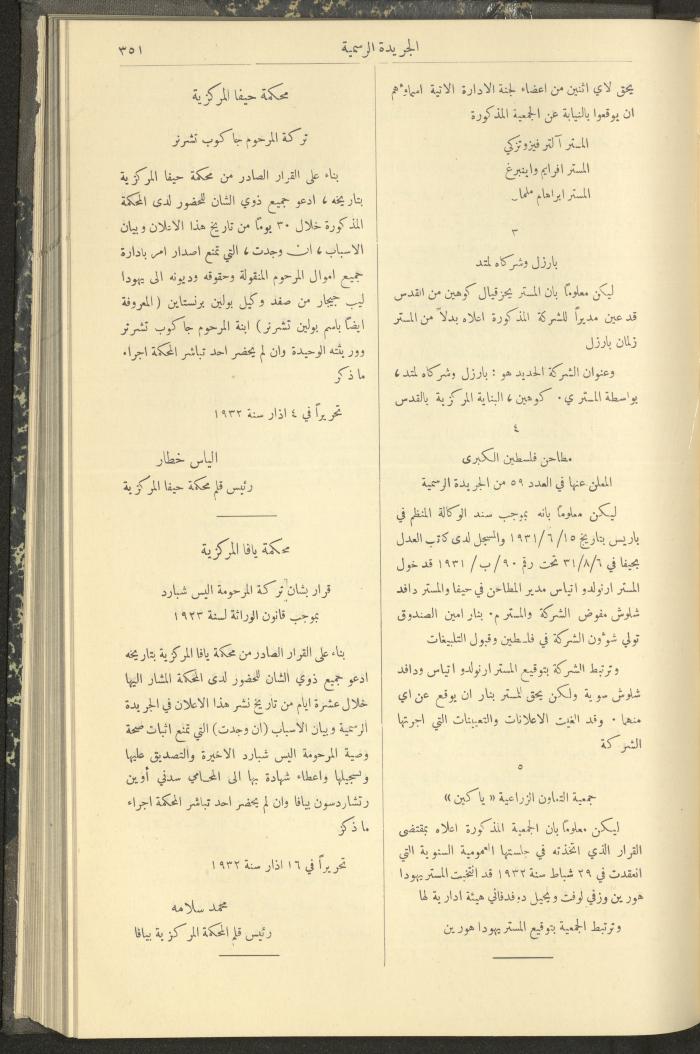 الجريدة الرسمية
٣٥١
يحق لاي اثنين من اعضاء لجنة الادارة الاتية اسماؤهم
ان يوقعوا بالنيابة عن الجمعية المذكورة
المستر آلتر فيزوتزكي
المستر افرايم واينبرغ
المستر ابراهام
٣
بارزل وشركاه لمتد
ليكن معلومًا بان المستر يحزقيال كوهين من القدس
قد عين مديرًا للشركة المذكورة اعلاه بدلاً من المستر
زلمان بارزل
وعنوان الشركة الجديد هو : بارزل وشركاه لمتد ،
بواسطة المستر ي . كوهين ، البناية المركزية بالقدس
٤
مطاحن فلسطين الكبرى
المعلن عنها في العدد ٥٩ من الجريدة الرسمية
ليكن معلومًا بانه بموجب سند الوكالة المنظم في
باريس بتاريخ ١٥ / ٦ / ١٩٣١ والمسجل لدى كاتب العدل
بحيفا في ٣١/٨/٦ تحت رقم ٩٠ / ب / ١٩٣١ قد خول
المستر ارنولدو اتياس مدير المطاحن في حيفا والمستر دافد
شلوش مفوض الشركة والمستر م . بنار امين الصندوق
تولي شوءون الشركة في فلسطين وقبول التلبيغات
وترتبط الشركة بتوقيع المستر ارنولدو اتياس ودافد
شلوش سوية ولكن يحق للمستر بنار ان يوقع عن اي
منهما . وقد الغيت الاعلانات والتعيينات التي اجرتها
الشركة
٥
جمعية التعاون الزراعية « ياكين »
ليكن معلومًا بان الجمعية المذكورة اعلاه بمقتضى
القرار الذي اتخذته في جلستها العمومية السنوية التي
انعقدت في ٢٩ شباط سنة ١٩٣٢ قد انتخبت المستر يهودا
هورين وزفي لوفت ويحيل دوفدفاني هيئة ادارية لها
وترتبط الجمعية بتوقيع المستر يهودا هورين
محكمة حيفا المركزية
تركة المرحوم جاكوب تشرنر
بناء على القرار الصادر من محكمة حيفا المركزية
بتاريخه ، ادعو جميع ذوي الشان للحضور لدى المحكمة
المذكورة خلال ٣٠ يومًا من تاريخ هذا الاعلان وبيان
الاسباب ، ان وجدت ، التي تمنع اصدار امر بادارة
جميع اموال المرحوم المنقولة وحقوقه وديونه الى يهودا
ليب جيجار من صفد وكيل بولين برنستاين ( المعروفة
ايضًا باسم بولين تشرنر ) ابنة المرحوم جاكوب تشرنر
ووريثته الوحيدة وان لم يحضر احد تباشر المحكمة اجراء
ما ذكر
تحريرًا في ٤ اذار سنة ١٩٣٢
الياس خطار
رئيس قلم محكمة حيفا المركزية
محكمة يافا المركزية
قرار بشان تركة المرحومة اليس شبارد
بموجب قانون الوراثة لسنة ١٩٢٣
بناء على القرار الصادر من محكمة يافا المركزية بتاريخه
ادعو جميع ذوي الشان للحضور لدى المحكمة المشار اليها
خلال عشرة ايام من تاريخ نشر هذا الاعلان في الجريدة
الرسمية وبيان الاسباب (ان وجدت) التي تمنع اثبات صحة
وصية المرحومة اليس شبارد الاخيرة والتصديق عليها
وتسجيلها واعطاء شهادة بها الى المحامي سدني أوين
رتشاردسون بيافا وان لم يحضر احد تباشر المحكمة اجراء
ما ذكر
تحريرًا في ١٦ اذار سنة ١٩٣٢
محمد سلامه
رئيس قلم المحكمة المركزية بيافا